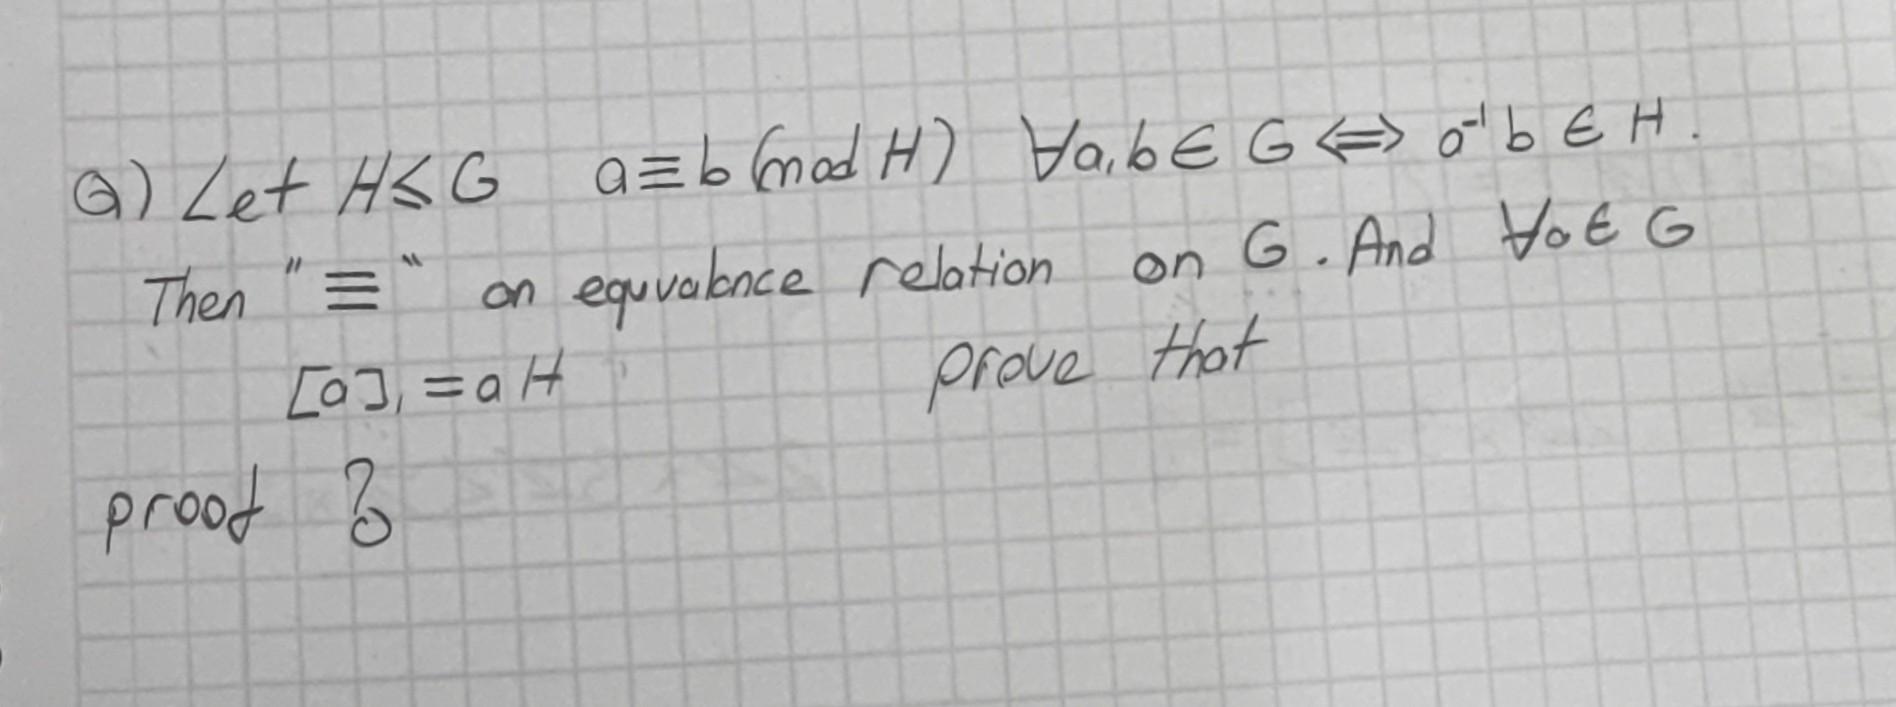 Q) Let H ≤ G a ≡ b (mod H) ∀a,b ∈ G ⇔ a⁻¹b ∈ H.
Then "≡" an equvalence relation on G. And ∀a ∈ G
[a], = aH prove that
proof ?